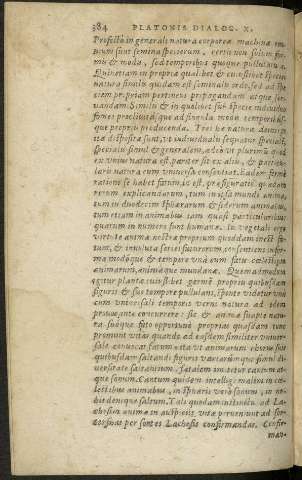 384 PLATONIS DIALOG. X.
Profecto in generali natura corporeæ machinæ
sunt semina specierum, certis non solum for-
mis & modis, sed temporibus quoque
Quinetiam in propria qualibet & cuiuslibet speciei
natura similis quidam est seminalis ordo, sed ad spe
ciem propriam pertinens propagandam atque ser-
uandam. Similis & in quolibet sub specie indiuiduo
fomes procliuitasque ad similia modis temporibus-
que propriis producenda. Tres hæ naturæ
ita dispositæ sunt, ut indiuidualis sequatur specialem,
specialis simul & generalem, adeo ut plurimis
ex unius natura est, pariter sit ex aliis, & particu-
laris natura cum uniuersa consentiat. Eadem ferme
ratione se habet fatum, id est, præfiguratio quædam
rerum explicandarum, tum in ipsa mundi anima,
tum in duodecim sphærarum & siderum animabus,
tum etiam in animabus iam quasi particularibus:
quarum in numero sunt humanæ. In vegetali ergo
virtute animæ nostræ proprium quoddam inest fa-
tum, & inuoluta series futurorum consentiens infor-
ma modoque & tempore una cum fatis cælestium
animarum, animæque mundanæ. Quemadmodum
igitur plantæ cuiuslibet germen propriis quibusdam
figuris & suo tempore pullulans, sponte videtur una
cum uniuersali temporis verni natura ad idem
penitus ante concurrere: sic & anima suapte natu-
ra suoque fato opportune proprias quasdam
promunt vitas quando ad easdem similiter
sale conuocat fatum. Ita vt animarum
quibusdam saltandi figuris variarumque simul di-
uersitate saltantium, fatalem imitetur cantum at-
que sonum. Cantum quidem intellige maxime in cæ-
lestibus animabus, in sphæris vero sonum, in no-
bis denique saltum. Tali quodam instinctu ad La-
chesim animæ in auspiciis vitæ perueniunt ad for-
per sortes Lachesis confirmandas. Confir-
man-